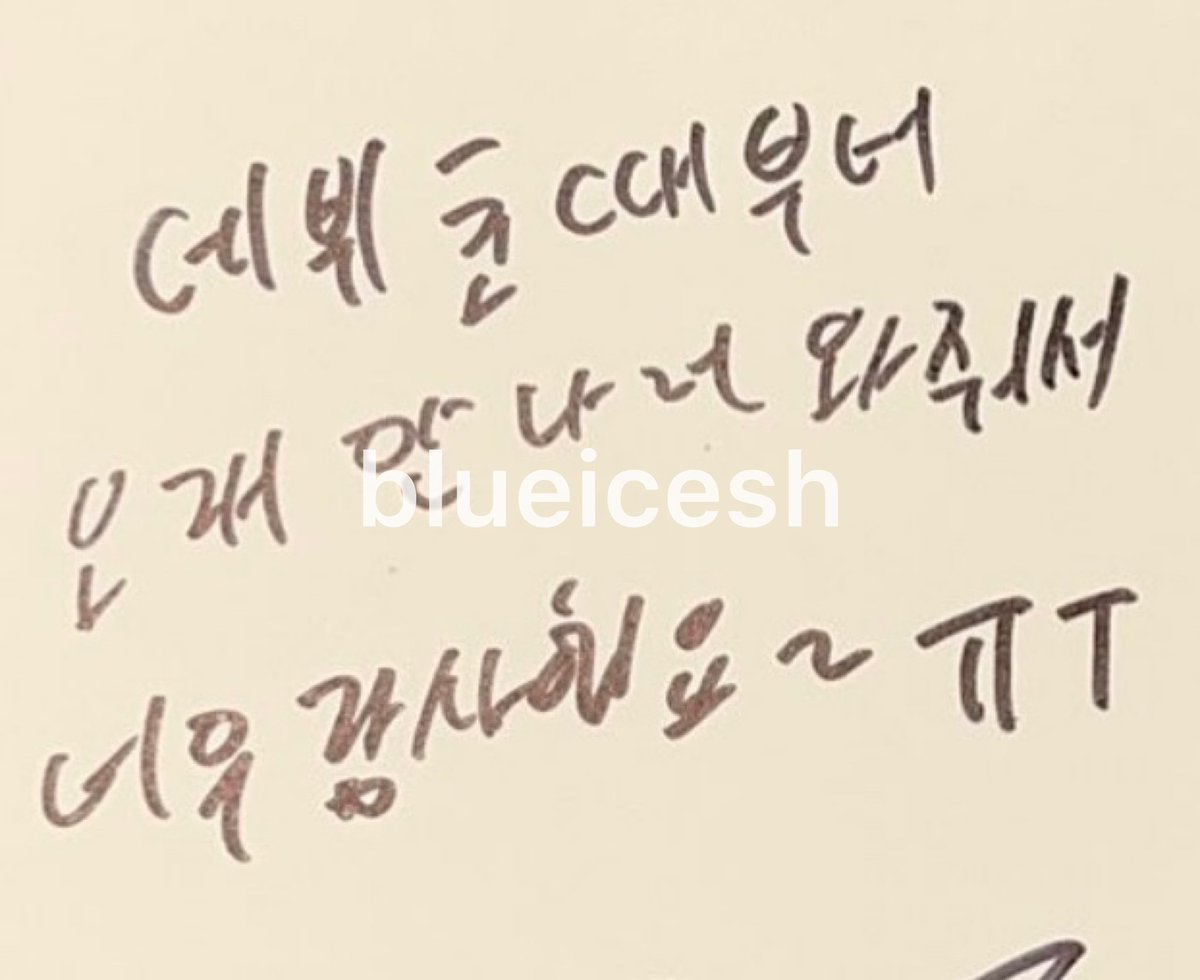 데뷔 때부터
만나러 와줘서
너무 감사해요~ ㅠㅜ
blueicesh